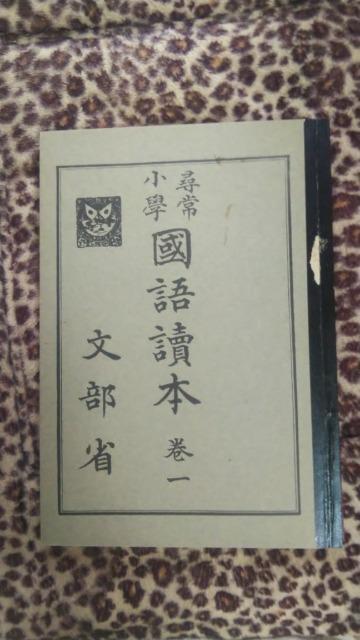 尋常
小學
國語讀本 卷一
文部省